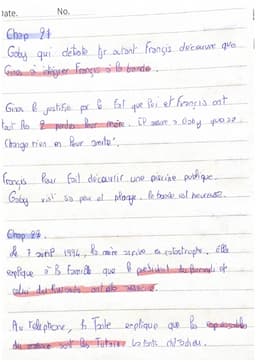 Date. No.
Chap 21
Gaby qui déteste fr autant Françis découvre que
Gino a intégrer Françis à la bande.
Gino le justifie par le fait que lui et Françis ont
tout les 2 perdus leur mère. Il assure à Gaby que sa
change rien en leur amitié.
Françis leur fait découvrir une piscine publique.
Gaby vit sa peur et plonge. la bande est heureuse.
Chap 22.
Le 7 avril 1994, la mère arrive en catastrophe. Elle
explique à la famille que le président du Burundi et
celui du Rwanda ont été assassiné.
Au téléphone, la Tante explique que les responsables
les Tutsis